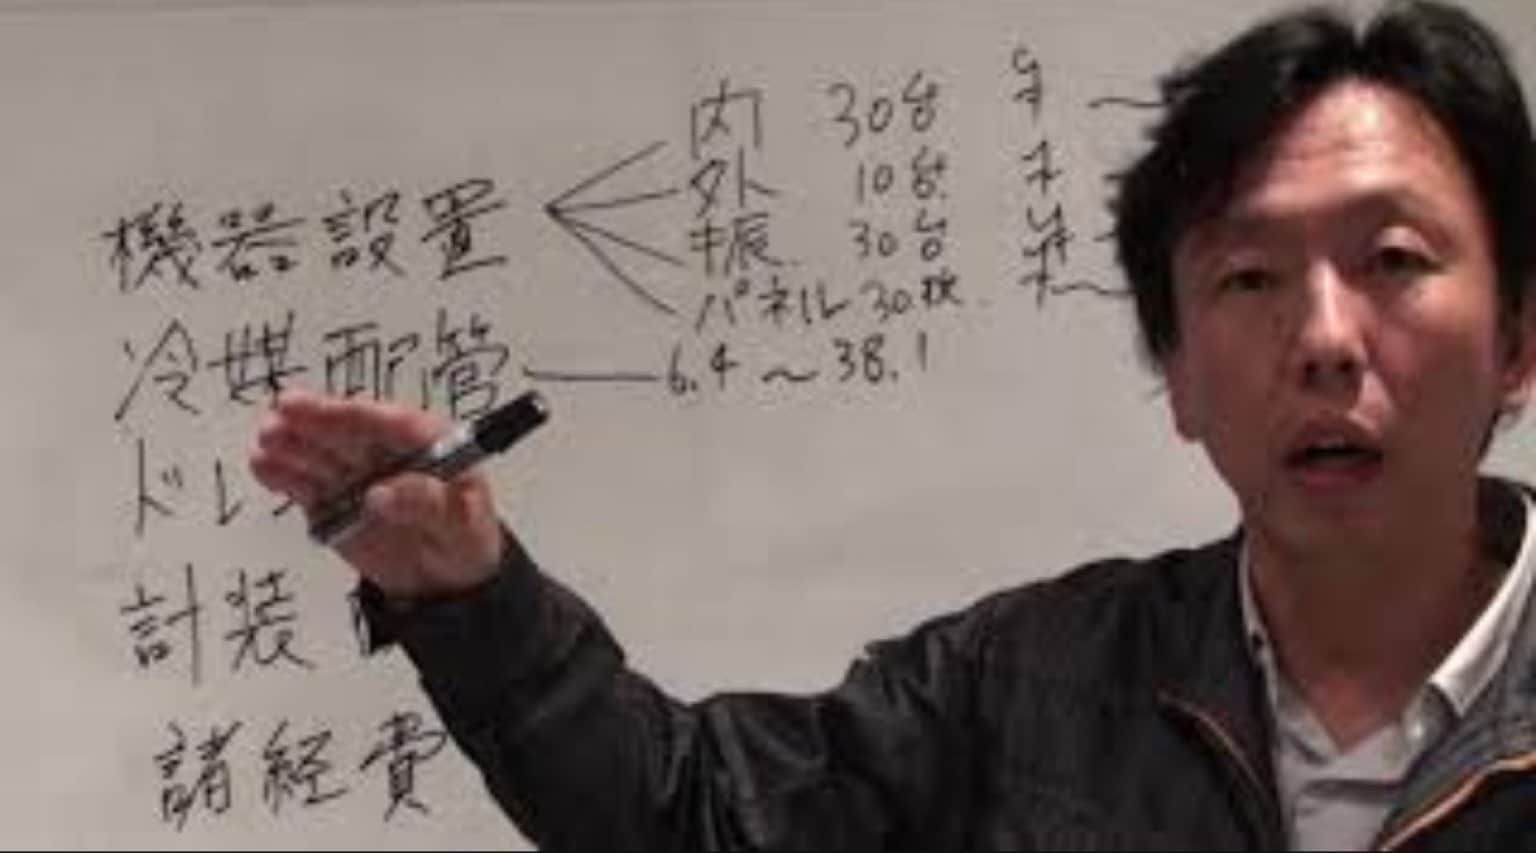 内 30台 ¥
機器設置 外 10台 ¥
振 30台 ¥
パネル 30枚 ¥
冷媒配管 6.4〜38.1
ドレ
計装
諸経費